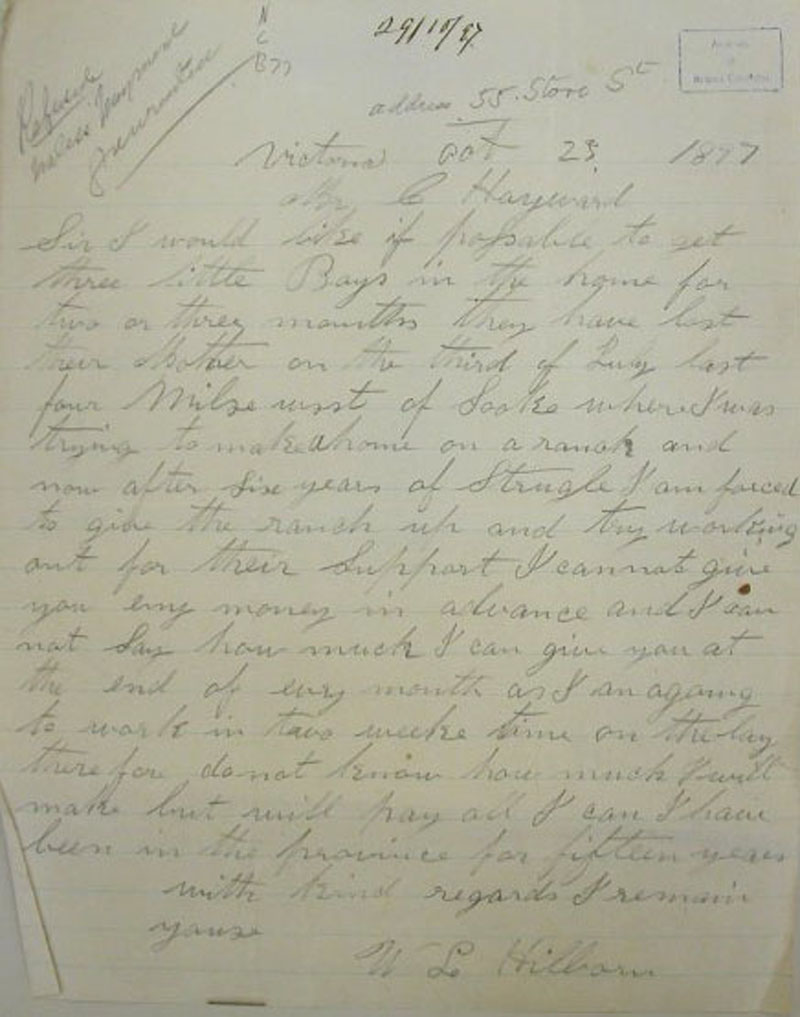 29/10/97
N
C
B77
Refused
unless payment
guaranteed
Archives
of
British Columbia
address 55. Store St
Victoria Oct 23 1897
Mr C Hayward
Sir I would like if possable to get
three little Boys in the home for
two or three mounths they have lost
their Mother on the third of July last
four Milse west of Sooke where I was
trying to make a home on a ranch and
now after six years of Strugle I am forced
to give the ranch up and try working
out for their Support I cannot give
you eny money in advance and I can
not Say how much I can give you at
the end of evry month as I am agoing
to work in two weeke time on the lay
therefor do not know how much I will
make but will pay all I can I have
been in the province for fifteen years
with kind regards I remain
yours
W L Hilborn